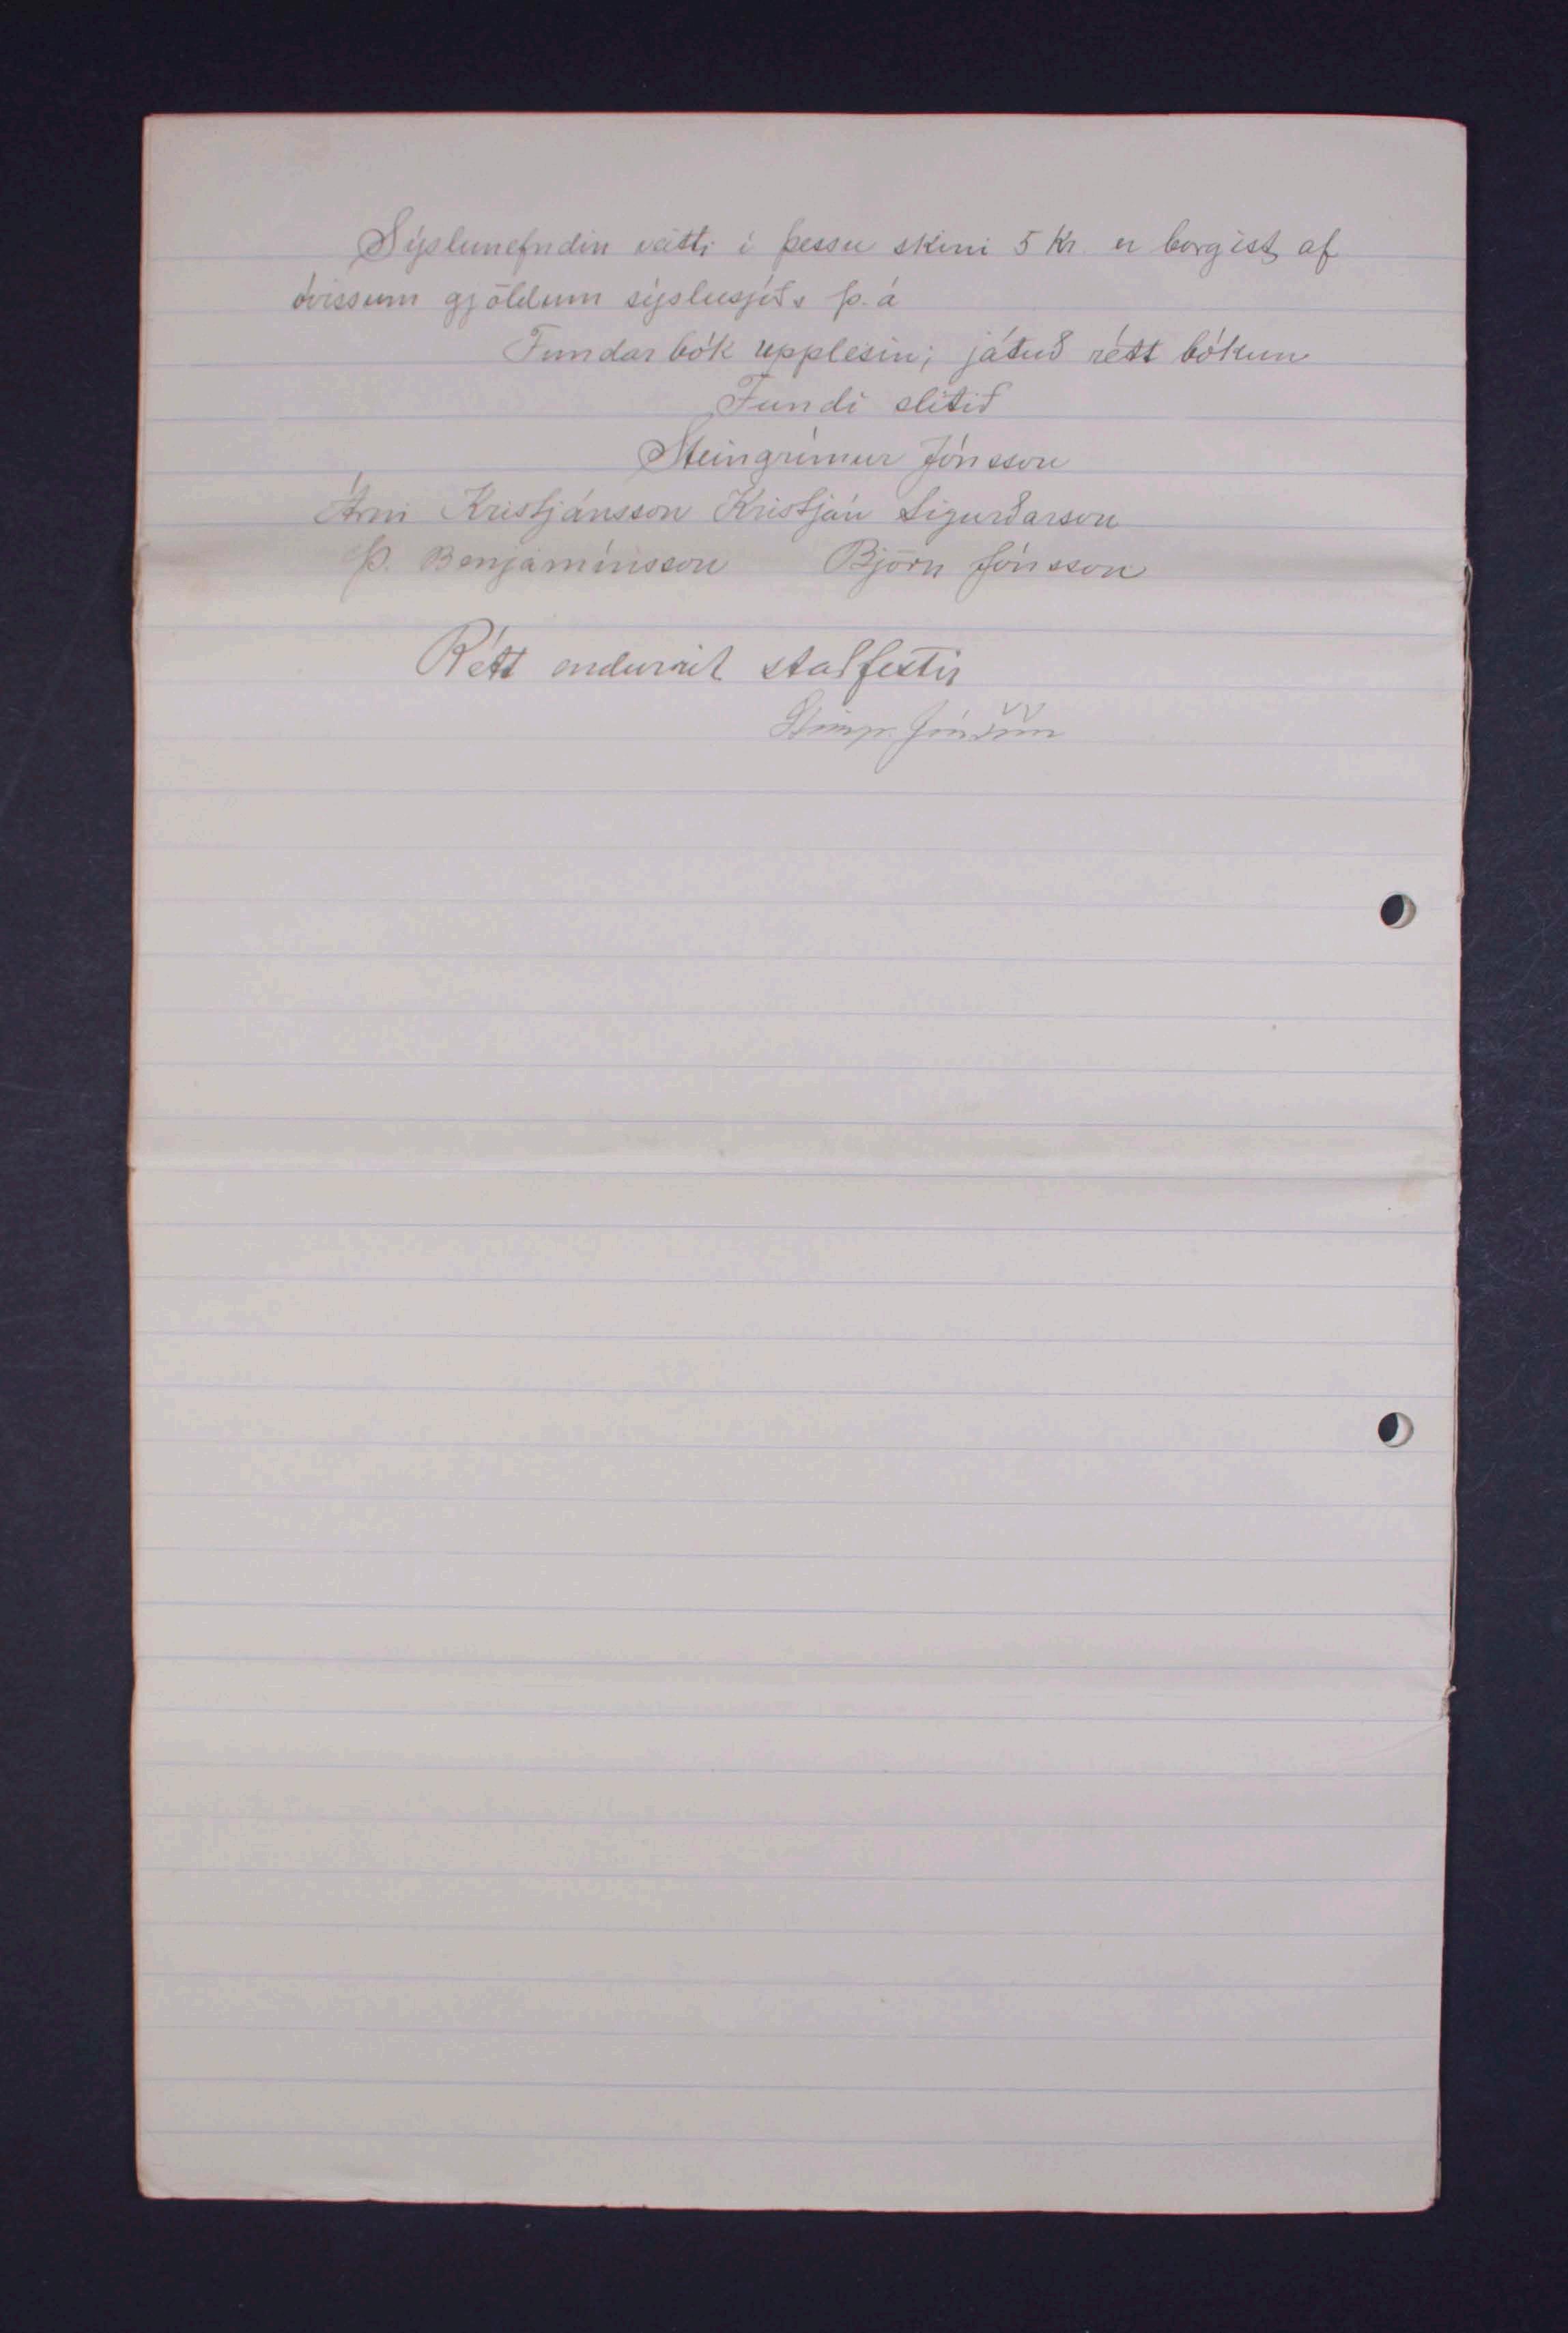 Sýslunefndin veitti í þessu skini 5 kr. er borgist af
óvissum gjöldum sýslusjóðs þ. á
Fundarbók upplesin; játuð rétt bókun
Fundi slitið
Steingrímur Jónsson
Árni Kristjánsson Kristján Sigurðarson
Þ. Benjamínsson Björn Jónsson
Rétt endurrit staðfestir
Steingr. Jónsson